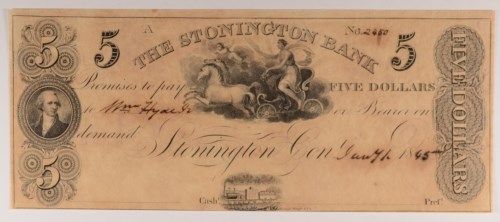 A No. 2450
5 5 THE STONINGTON BANK 5
Promises to pay FIVE DOLLARS
to Wm Hyde Jr or Bearer on
demand
Stonington Con! Jan 7th 1845
5
Cash! Pres!
FIVE DOLLARS